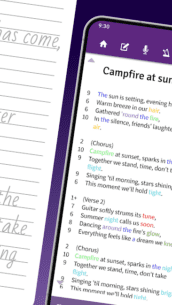 has come,
ter
the
take
ng
9:30
Campfire at sun
9 The sun is setting, evening h
6 Warm breeze in our
6 Gathered 'round the fire,
8 In the silence, friends' laughter
air.
2 (Chorus)
9 Campfire at sunset, sparks in th
7 Together we stand, time, don't t
flight.
9 Singing 'til morning, stars shining
7 This moment we'll hold tight.
1+ (Verse 2)
7 Guitar softly strums its tune,
6 Summer night calls us soon,
8 Dancing around the fire's glow,
9 Everything feels like a dream we kn
2 (Chorus)
9 Campfire at sunset, sparks in the nig
7 Together we stand, time, don't take
flight.
9 Singing 'til morning, stars shining brig
7 This moment we'll hold tight.